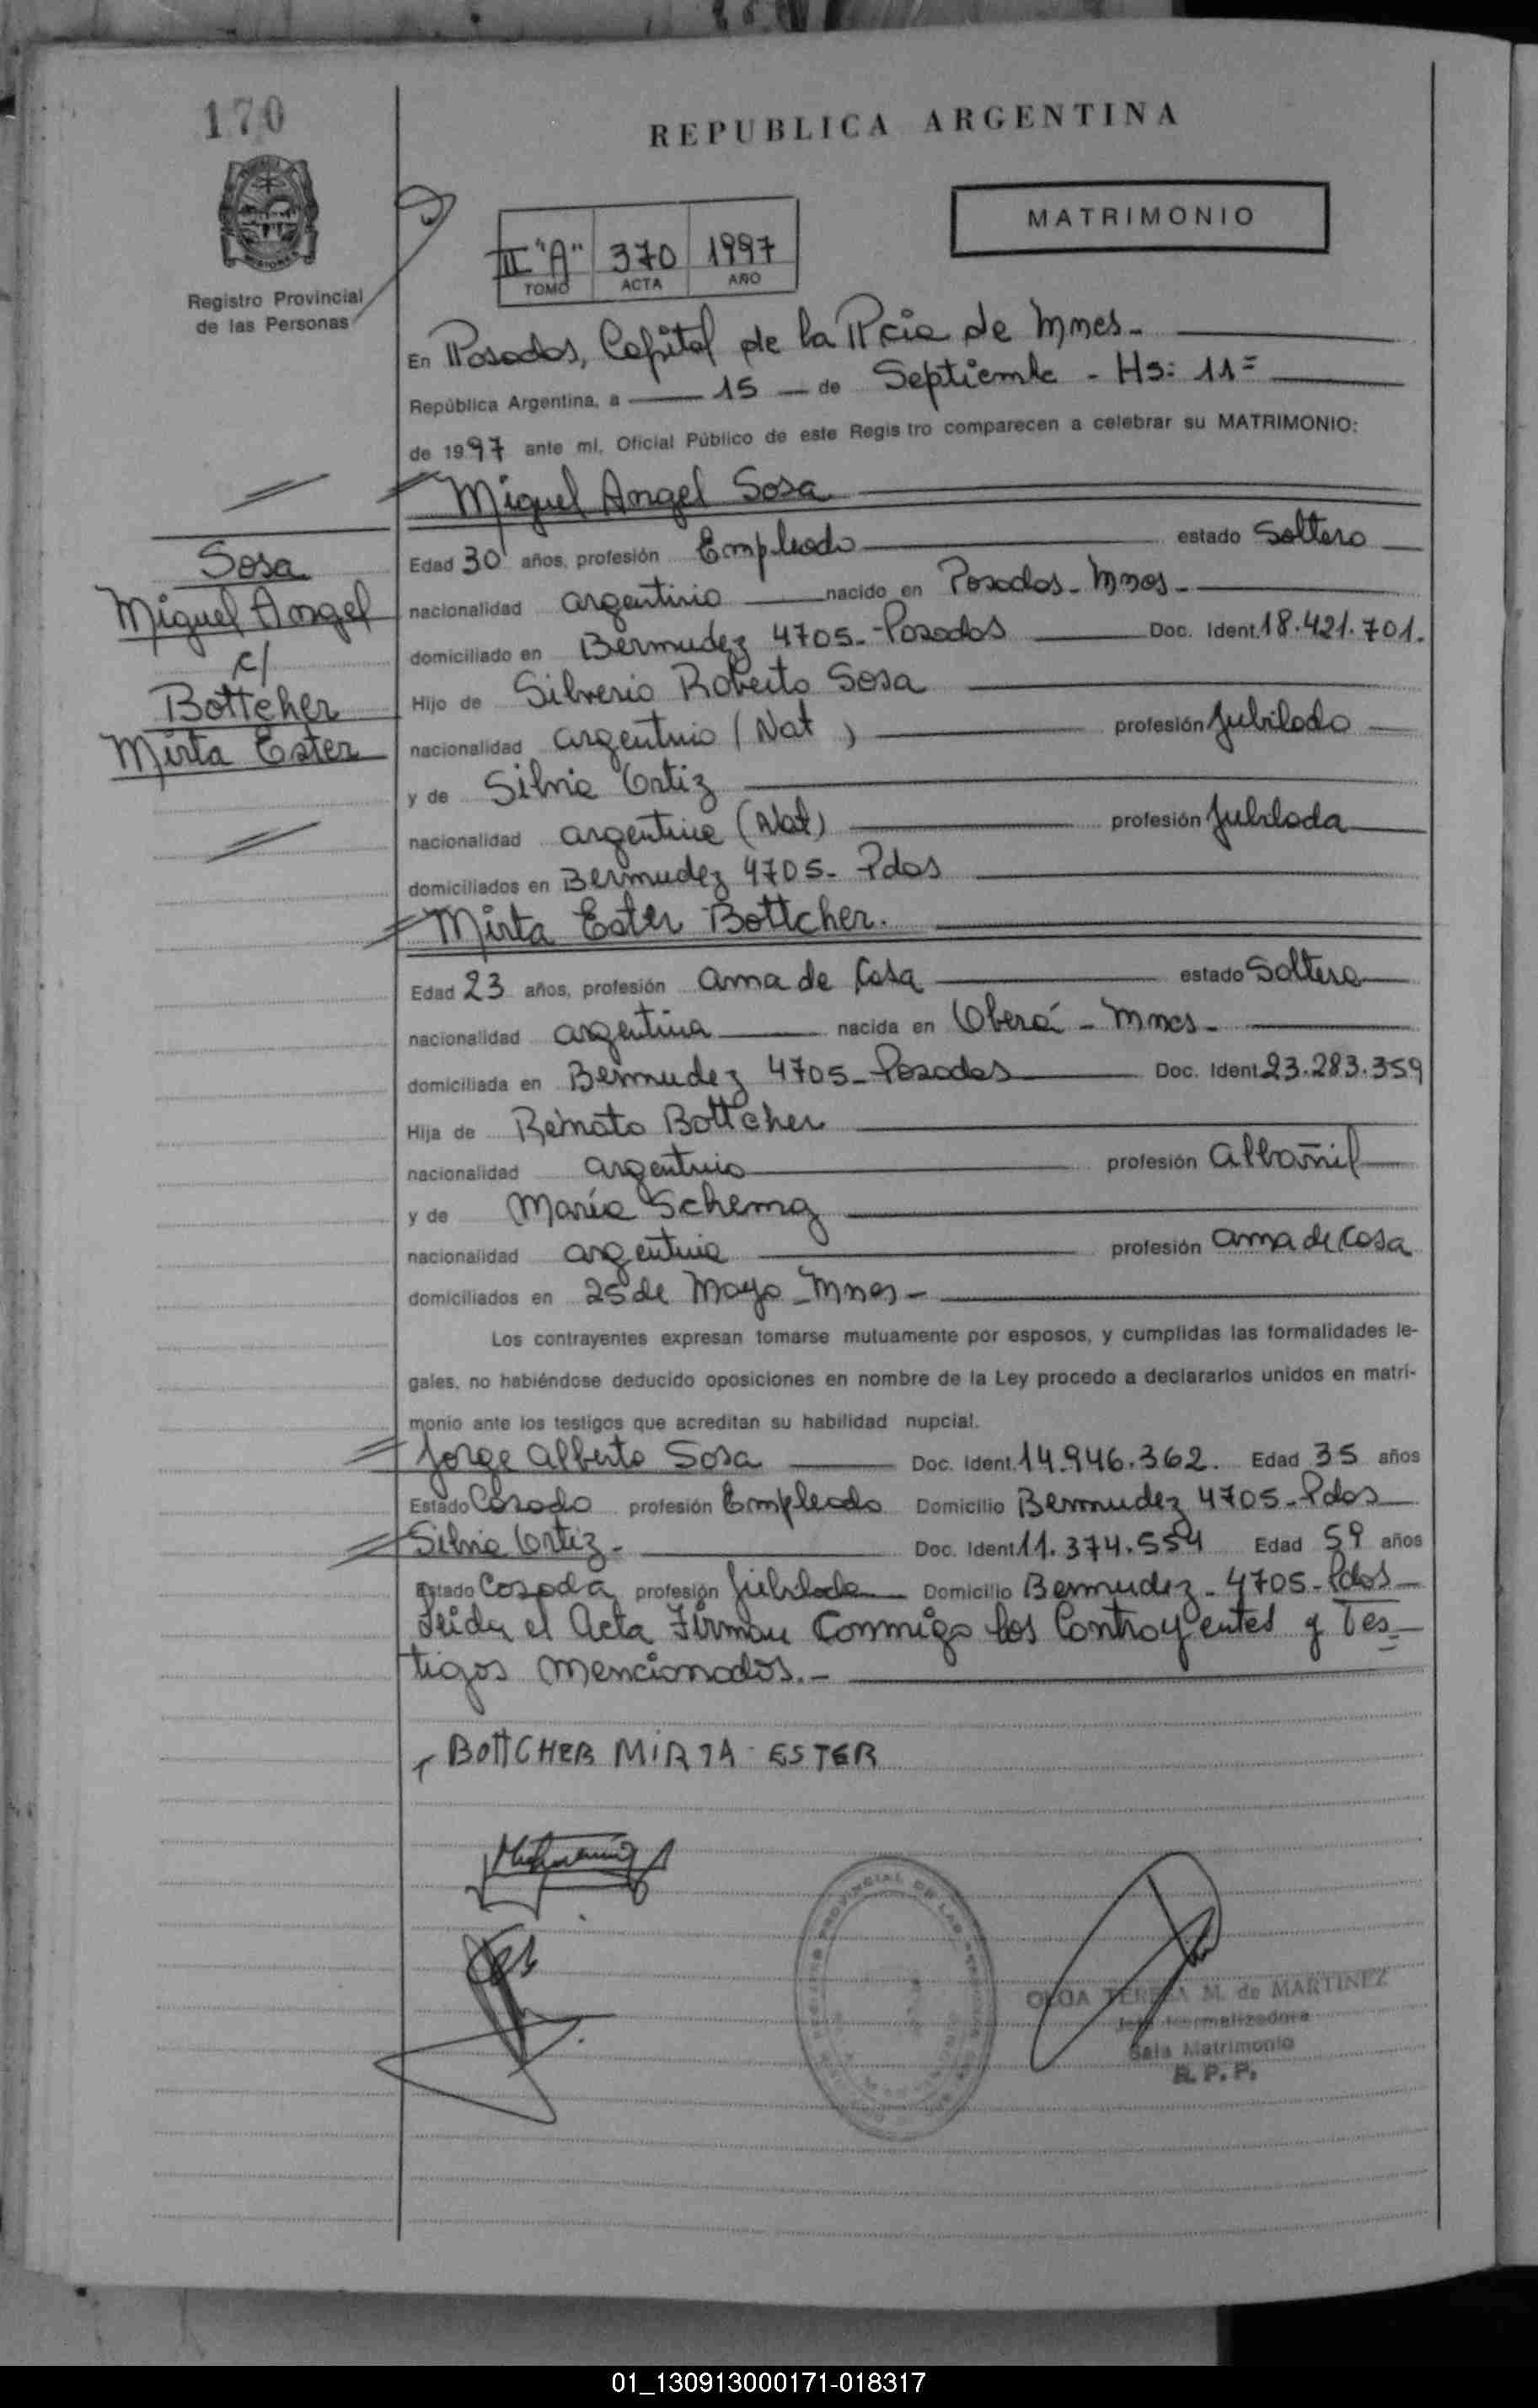 170
REPUBLICA ARGENTINA
MATRIMONIO
Registro Provincial
de las Personas
II "A" 370 1997
TOMO ACTA AÑO
En Posadas, Capital de la Pcia de Mnes.
República Argentina, a 15 de Septiembre - Hs: 11=
de 1997 ante mi, Oficial Público de este Registro comparecen a celebrar su MATRIMONIO:
Miguel Angel Sosa
Sosa
Miguel Angel
c/
Bottcher
Mirta Ester
Edad 30 años, profesión Empleado estado Soltero
nacionalidad argentino nacido en Posadas - Mnes -
domiciliado en Bermudez 4705 - Posadas Doc. Ident. 18.421.701.
Hijo de Silverio Roberto Sosa
nacionalidad argentino (Nat) profesión Jubilado
y de Silvia Ortiz
nacionalidad argentina (Nat) profesión Jubilada
domiciliados en Bermudez 4705 - Pdas
Mirta Ester Bottcher.
Edad 23 años, profesión Ama de Casa estado Soltera
nacionalidad argentina nacida en Oberá - Mnes -
domiciliada en Bermudez 4705 - Posadas Doc. Ident. 23.283.359
Hija de Renato Bottcher
nacionalidad argentino profesión Albañil
y de María
nacionalidad argentina profesión ama de Casa
domiciliados en 25 de Mayo - Mnes -
Los contrayentes expresan tomarse mutuamente por esposos, y cumplidas las formalidades le-
gales, no habiéndose deducido oposiciones en nombre de la Ley procedo a declararlos unidos en matri-
monio ante los testigos que acreditan su habilidad nupcial.
Jorge Alberto Sosa Doc. Ident. 14.946.362. Edad 35 años
Estado Casado profesión Empleado Domicilio Bermudez 4705 - Pdas
Silvia Ortiz - Doc. Ident 11.374.554 Edad 59 años
Estado Casada profesión Jubilada Domicilio Bermudez - 4705 - Pdas
Leida el Acta Firman Conmigo los Contrayentes y Tes
tigos mencionados. -
BOTTCHER MIRTA ESTER
OLGA TERESA M. de MARTINEZ
Sala Matrimonio
R. P. P.
01_130913000171-018317